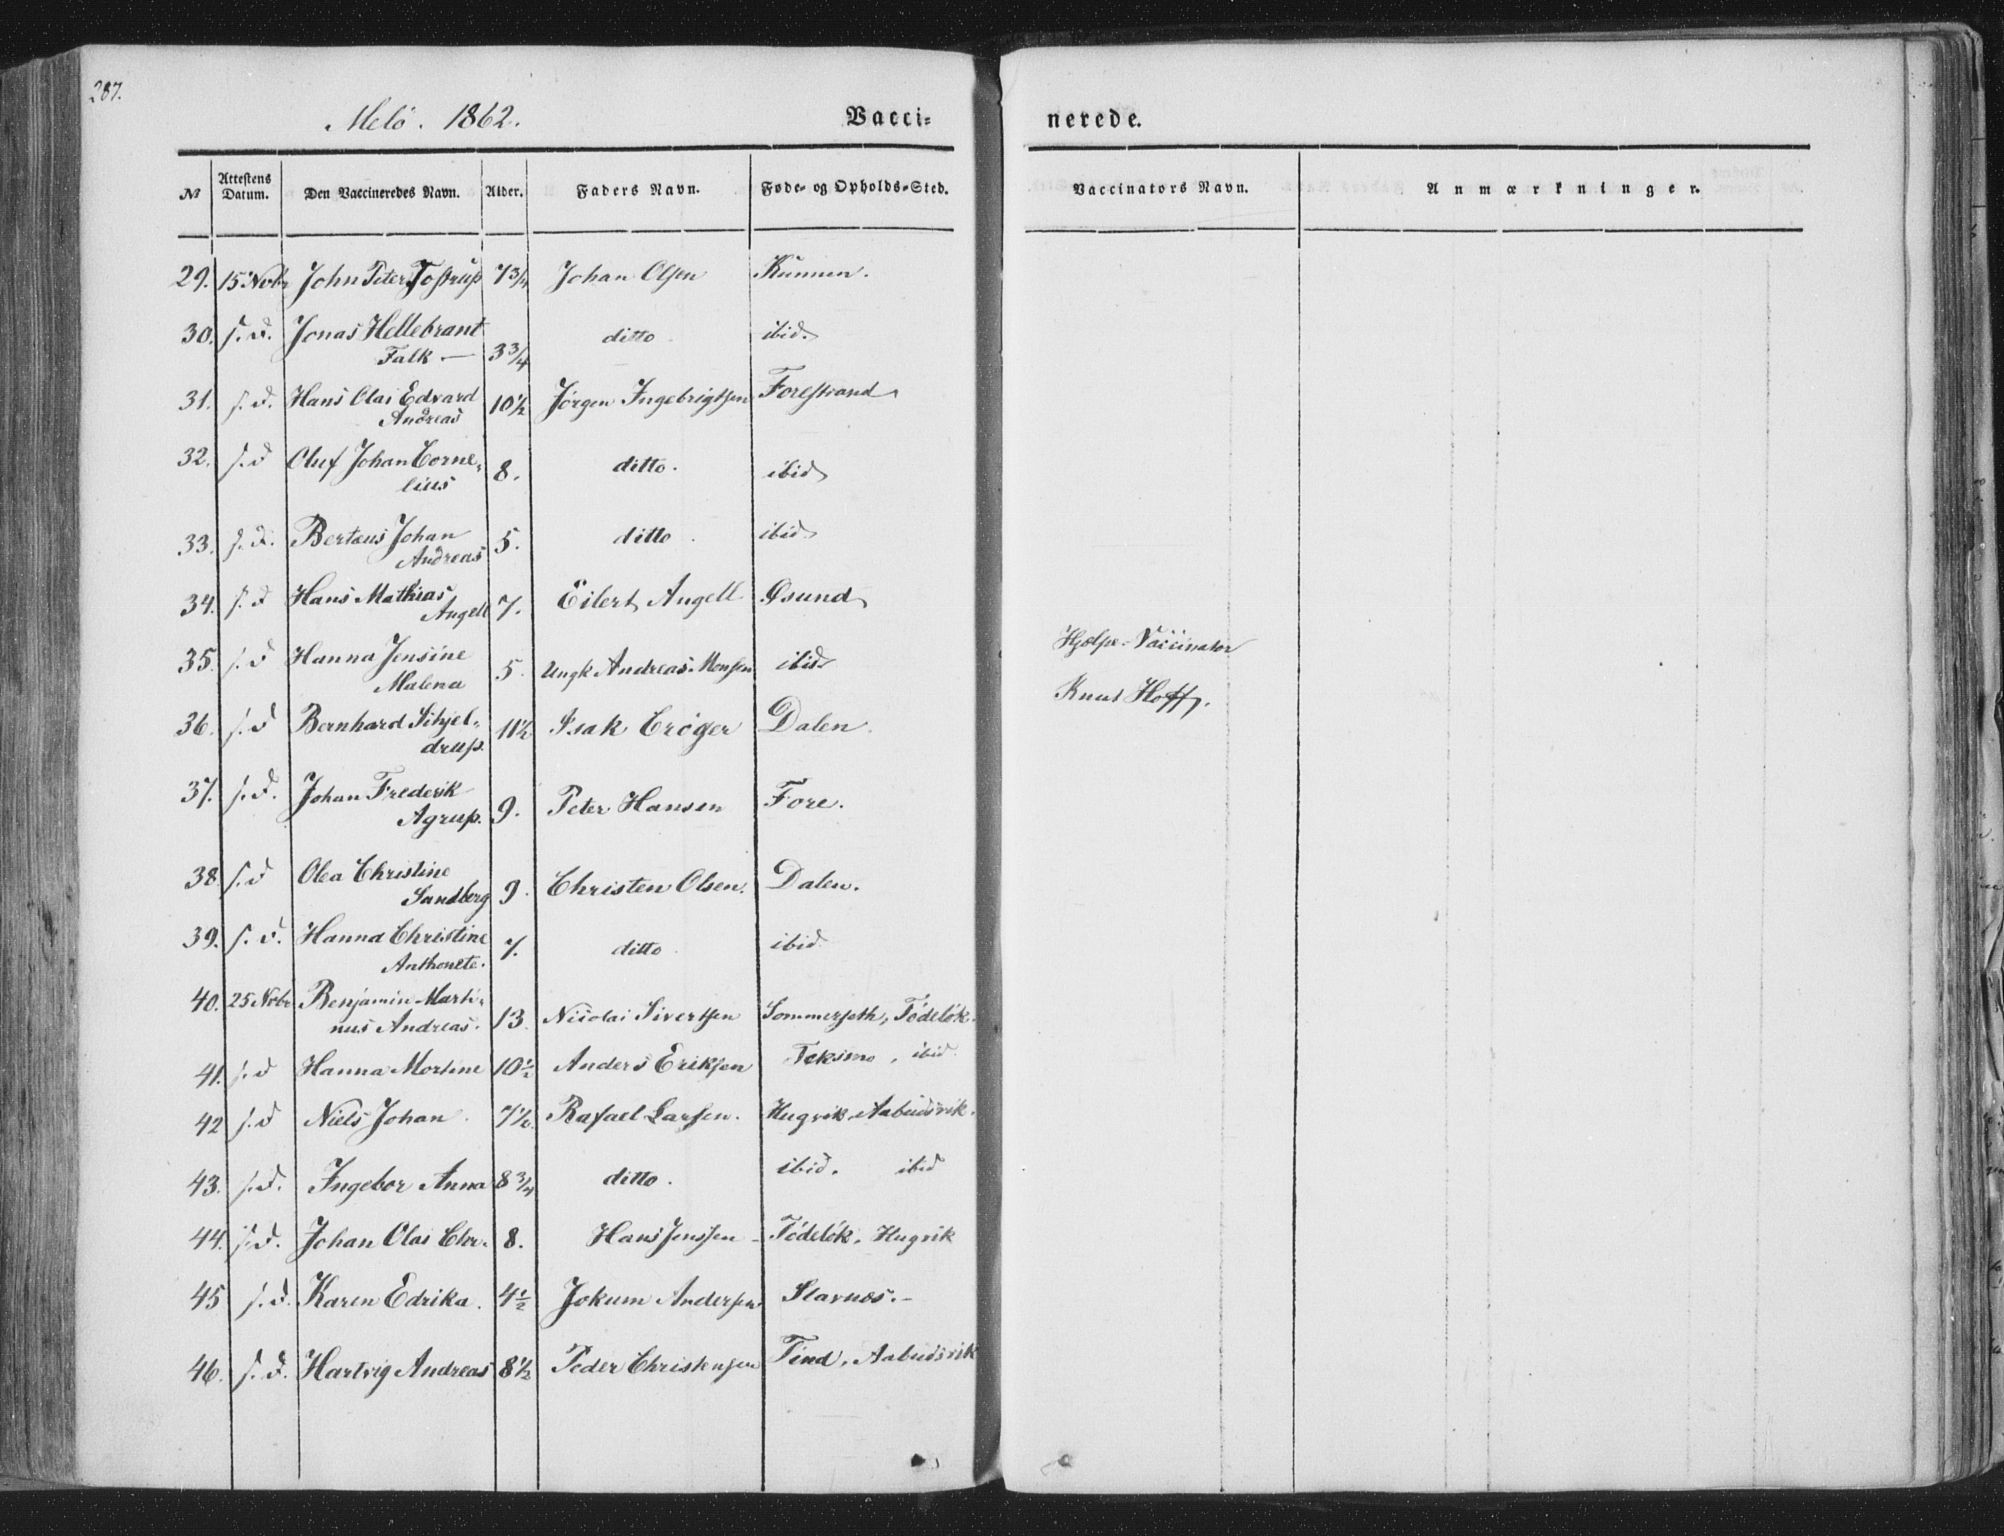 287.
Melö. 1862. Vacci= nerede.
No Attestens Datum. Den Vaccineredes Navn. Alder. Faders Navn. Føde- og Opholds-Sted. Vaccinators Navn. Anmærkninger.
29. 15 Nobr John Peter Tostrup 7 3/4 Johan Olsen Kunnen.
30. s. d. Jonas Hellebrant
Falk — 3 3/4 ditto ibid.
31. s. d. Hans Olai Edvard
Andreas 10 1/2 Jörgen Ingebrigtsen Forestrand
32. s. d Oluf Johan Corne-
lius 8. ditto. ibid
33. s. d. Bertæus Johan
Andreas 5. ditto. ibid
34. s. d Hans Mathias
Angell 7. Eilert Angell Øsund
35. s. d Hanna Jensine
Malena 5. Ungk Andreas Monsen ibid
Hjelpe-Vaccinator
Knut Hoff.
36. s. d Bernhard Schjel-
drup. 11 1/2 Isak Crøger Dalen.
37. s. d. Johan Frederik
Agrup. 9. Peter Hansen Fore.
38 s. d Olea Christine
Sandberg 9. Christen Olsen. Dalen.
39. s. d. Hanna Christine
Anthonete. 7. ditto ibid
40. 25 Nobr Benjamin Marti-
nus Andreas. 13. Nicolai Sivertsen Sommerseth, Födelök.
41. s. d Hanna Mortine 10 1/2 Anders Eriksen Teksmo, ibid.
42 s. d Niels Johan. 7 1/2 Rafael Larsen. Hugvik Aabudsvik.
43. s. d. Ingebor Anna 8 3/4 ditto. ibid. ibid
44. s. d. Johan Olai Chr. 8. Hans Jenssen - Födelök. Hugvik
45 s. d. Karen Edrika. 4 1/2 Jokum Andersen Stavnæs. -
46. s. d. Hartvig Andreas 8 1/2 Peder Christensen Tind, Aabudsvik